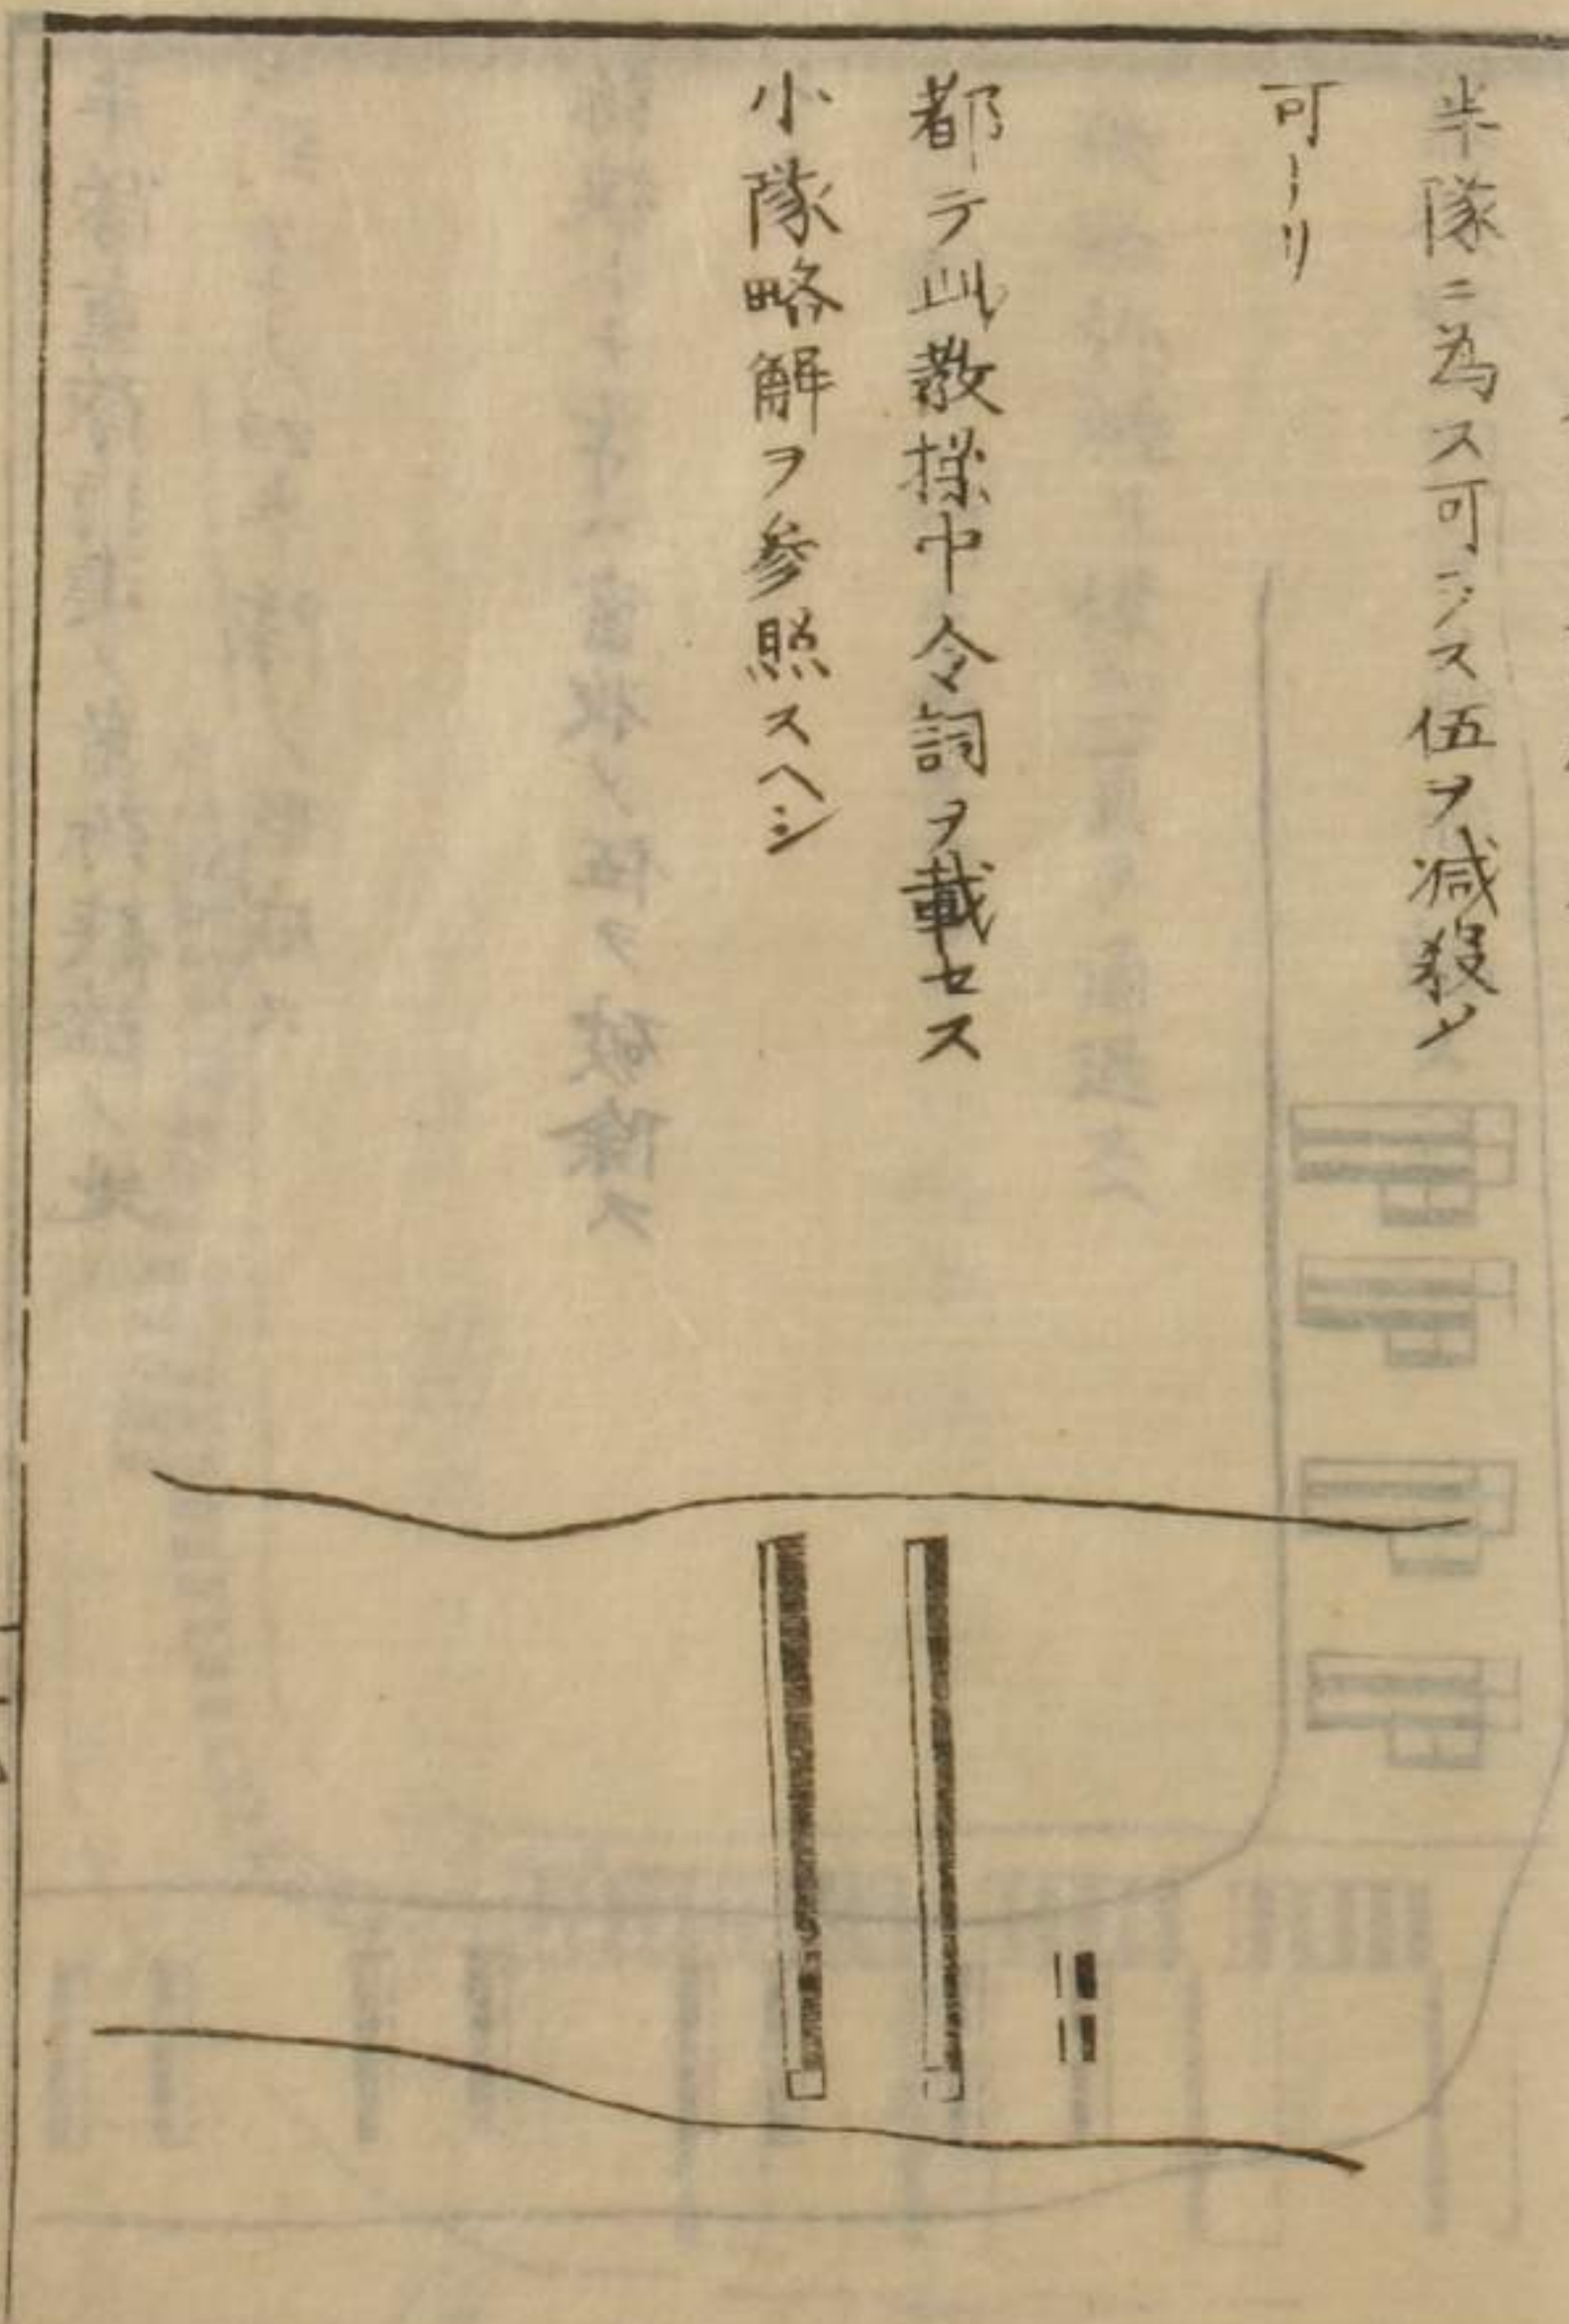 半隊ニ為ス可ラス伍ヲ減殺メ
可ナリ
都テ此教様中令詞ヲ載セス
小隊略解ヲ参照スヘシ